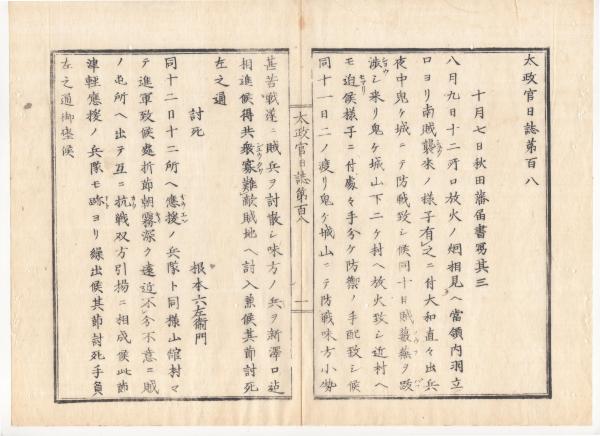 太政官日誌第百八
十月七日秋田藩届書寫其三
八月九日十二所口放火ノ烟相見ヘ當領内羽立
口ヨリ南賊襲来ノ様子有之ニ付大和直々出兵
夜中鬼ケ城ニテ防戰致シ候同十日賊叢藪ヲ跋
渉シ来リ鬼ケ城山下二ケ村ヘ放火致シ近村ヘ
モ迫候様子ニ付處々手分ケ防禦ノ手配致シ候
同十一日二ノ渡リ鬼ケ城山ニテ防戰味方小勢
太政官日誌第百八
一
甚苦戰遂ニ賊兵ヲ討散シ味方ノ兵ヲ新澤口迠
相進候得共衆寡難敵賊地ヘ討入兼候其節討死
左之通
討死
根本六左衞門
同十二日十二所ヘ應援ノ兵隊ト同様山舘村マ
テ進軍致候處折節朝霧深ク遠近不分不意ニ賊
ノ屯所ヘ出テ互ニ抗戰双方引揚ニ相成候此節
津輕應援ノ兵隊モ跡ヨリ繰出候其節討死手負
左之通御座候